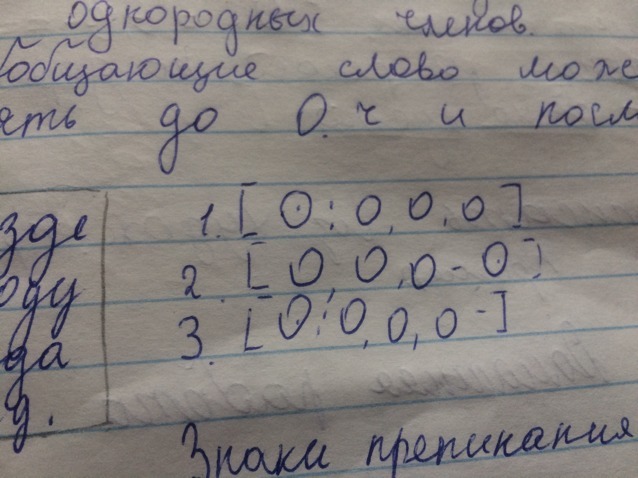 однородных членов.
обобщающие слово може
ять до О.ч и посл
зде 1. [ ⊙ : О, О, О ]
оду 2. [ О, О, О - ⊙ ]
да 3. [ ⊙ : О, О, О - ]
д.
Знаки препинания